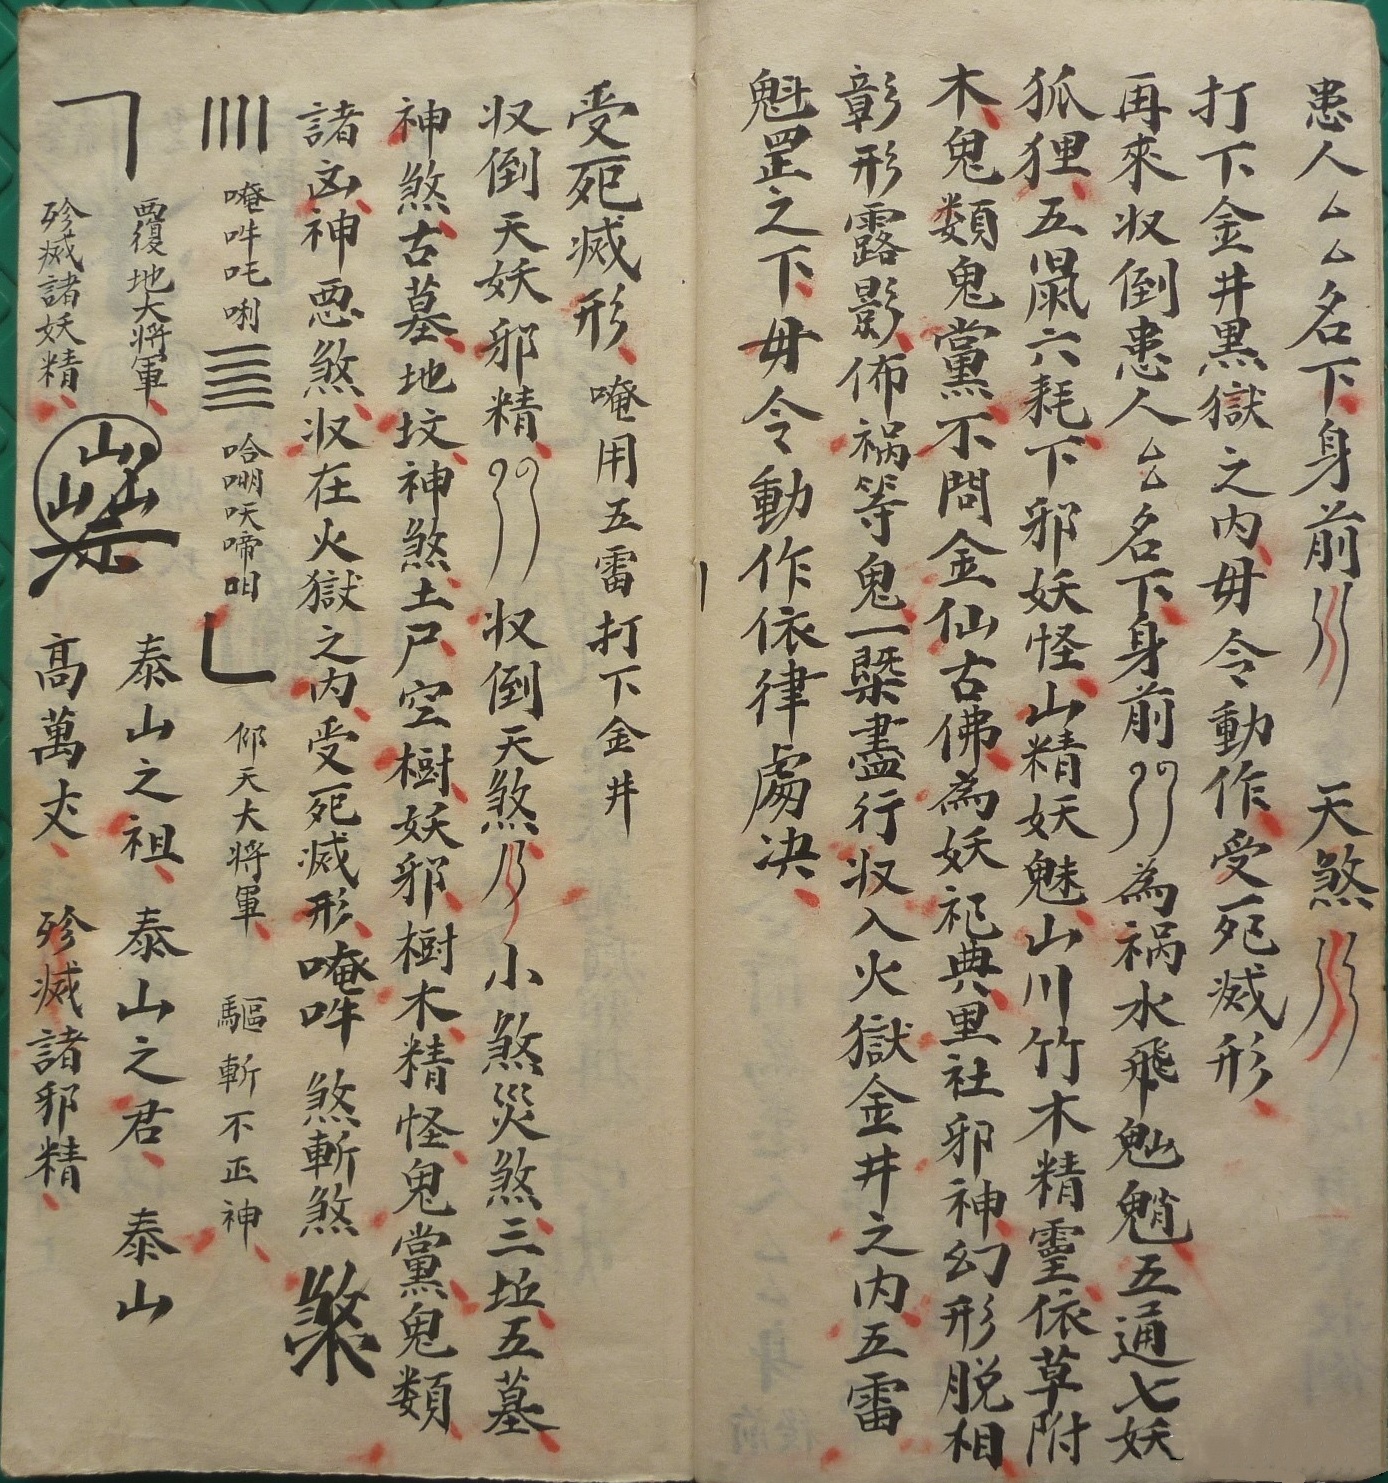 患人厶厶名下身前 天煞
打下金井黑獄之内毋令動作受死滅形
再來収倒患人厶厶名下身前 為禍水飛魈五通七妖
狐狸五鼠六耗下邪妖怪山精妖魅山川竹木精靈依草附
木鬼類鬼黨不問金仙古佛為妖祀典里社邪神幻形脱相
彰形露影佈禍等鬼一槩盡行収入火獄金井之内五雷
魁罡之下毋令動作依律處决
受死滅形唵用五雷打下金井
収倒天妖邪精 収倒天煞 小煞災煞三坵五墓
神煞古墓地坟神煞土尸空樹妖邪樹木精怪鬼黨鬼類
諸凶神惡煞収在火獄之内受死滅形唵吽 煞斬煞
唵吽吒唎 哈𠺕吙啼呬 仰天大将軍 驅斬不正神
覆地大将軍 泰山之祖 泰山之君 泰山
殄滅諸妖精 高萬丈 殄滅諸邪精